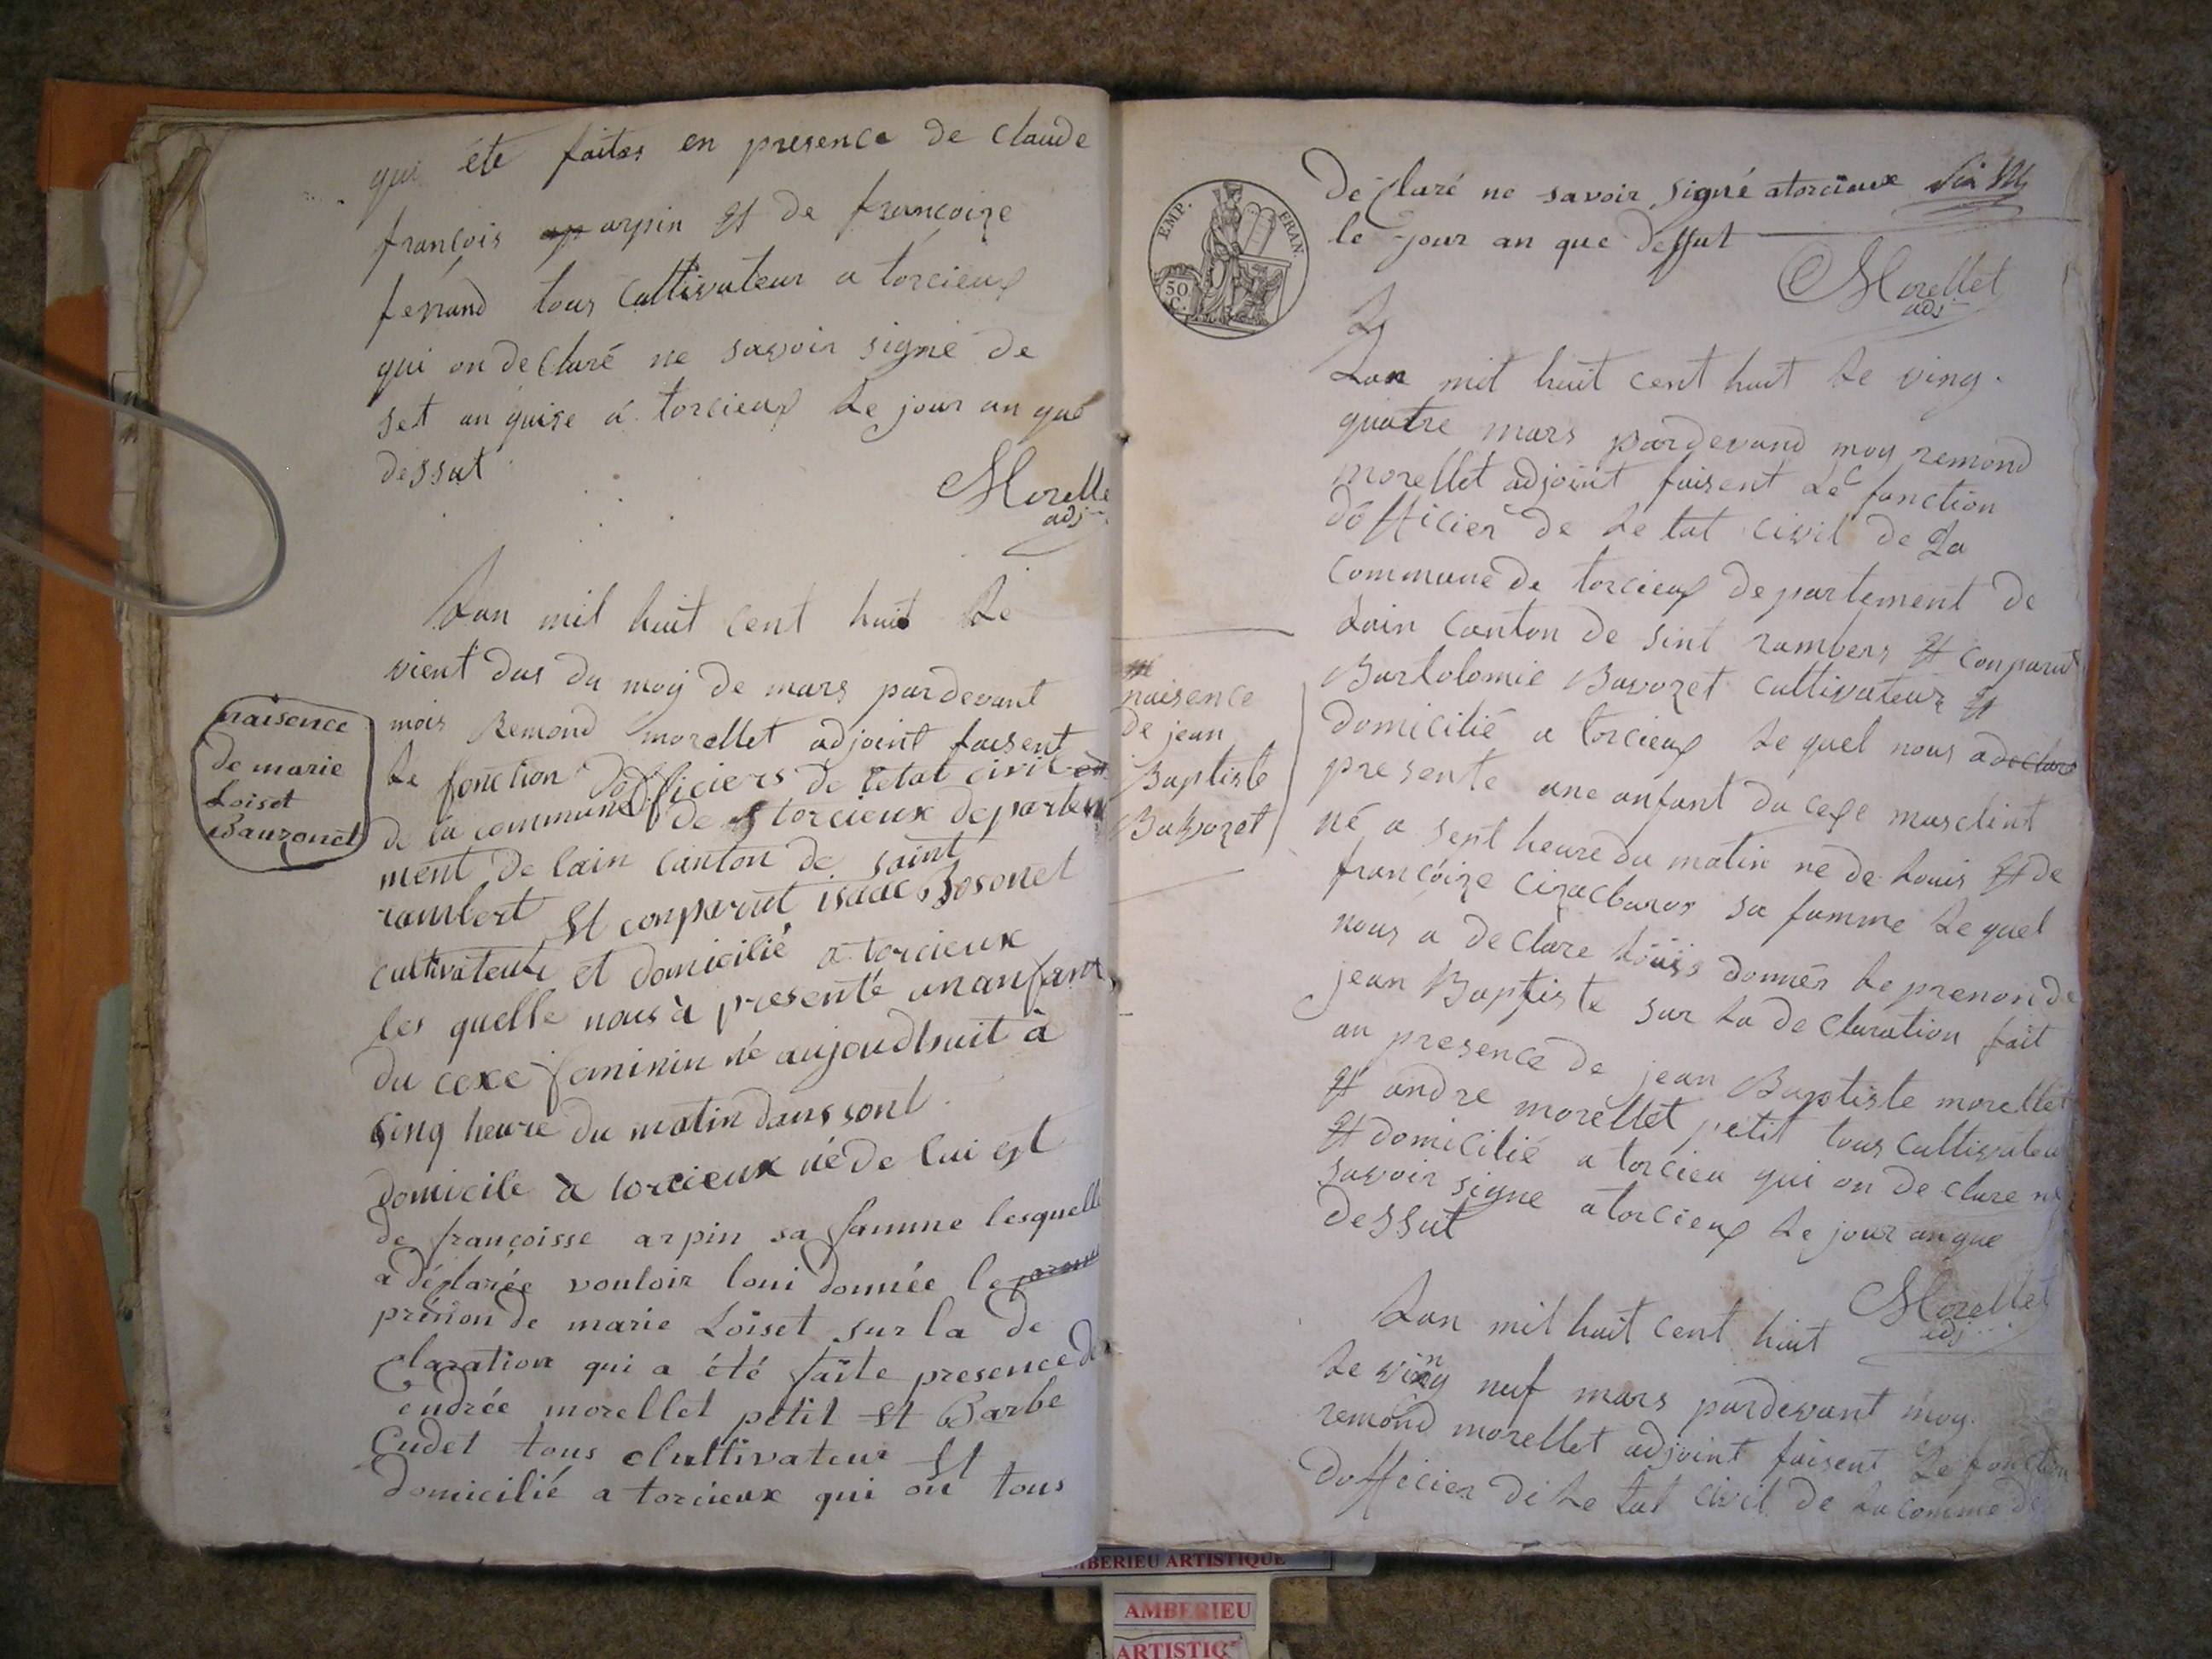 qui été faites en presence de Claude
francois arpin et de francoize
ferrand tous Cultivateur a torcieux
qui on declaré ne savoir signé de
set an quise a torcieux Le jour an que
dessut
Morelle
adj
Lan mil huit cent huit Le
vient dus du moy de mars pardevant
mois Remond morellet adjoint faisent
Le fonction dofficiers de letat civil
de la commune de torcieux departe
ment de lain Canton de saint
rambert et conparut isaac Bosonet
cultivateur et domicilié a torcieux
les quelle nous à presenté unanfant
du cexe feminin né aujoudhuit à
sinq heure du matin dans sont
domicile à torcieux né de lui est
de francoisse arpin sa famme lesquelle
a déclarée vouloir loui donnée le
prénon de marie Loiset sur la de
claration qui a été faite presence de
endrée morellet petit et Barbe
Cudet tous clultivateur et
domicilié a torcieux qui on tous
naisence
de marie
Loiset
Bauzonet
EMP. FRAN.
50
C.
déclaré ne savoir signé atorcieux
le jour an que dessut
Morellet
adj
Lan mil huit cent huit Le ving
quatre mars pardevand moy remond
morellet adjoint faisent Le fonction
dofficier de Le tat civil de La
Commune de torcieux departement de
Lain Canton de sint rambers et conparut
Bartolomie Bavozet cultivateur et
domicilié a torcieux Le quel nous a declare
presente une anfant du cexe masclint
né a sept heure du matin né de Louis et de
francoize sa famme Le quel
nous a declare donnér Le prenon de
jean Baptiste sur La declaration fait
an presence de jean Baptiste morellet
et andre morellet petit tous cultivateu
et domicilié a torcieu qui on declare ne
savoir signe a torcieux Le jour an que
dessut
Morellet
adj
naisence
de jean
Baptiste
Bavozet
Lan mil huit cent huit
Le ving neuf mars pardevant moy
remond morellet adjoint faisent Le fonction
dofficier de Le tat civil de La comme de
AMBERIEU ARTISTIQUE
AMBERIEU
ARTISTIQ